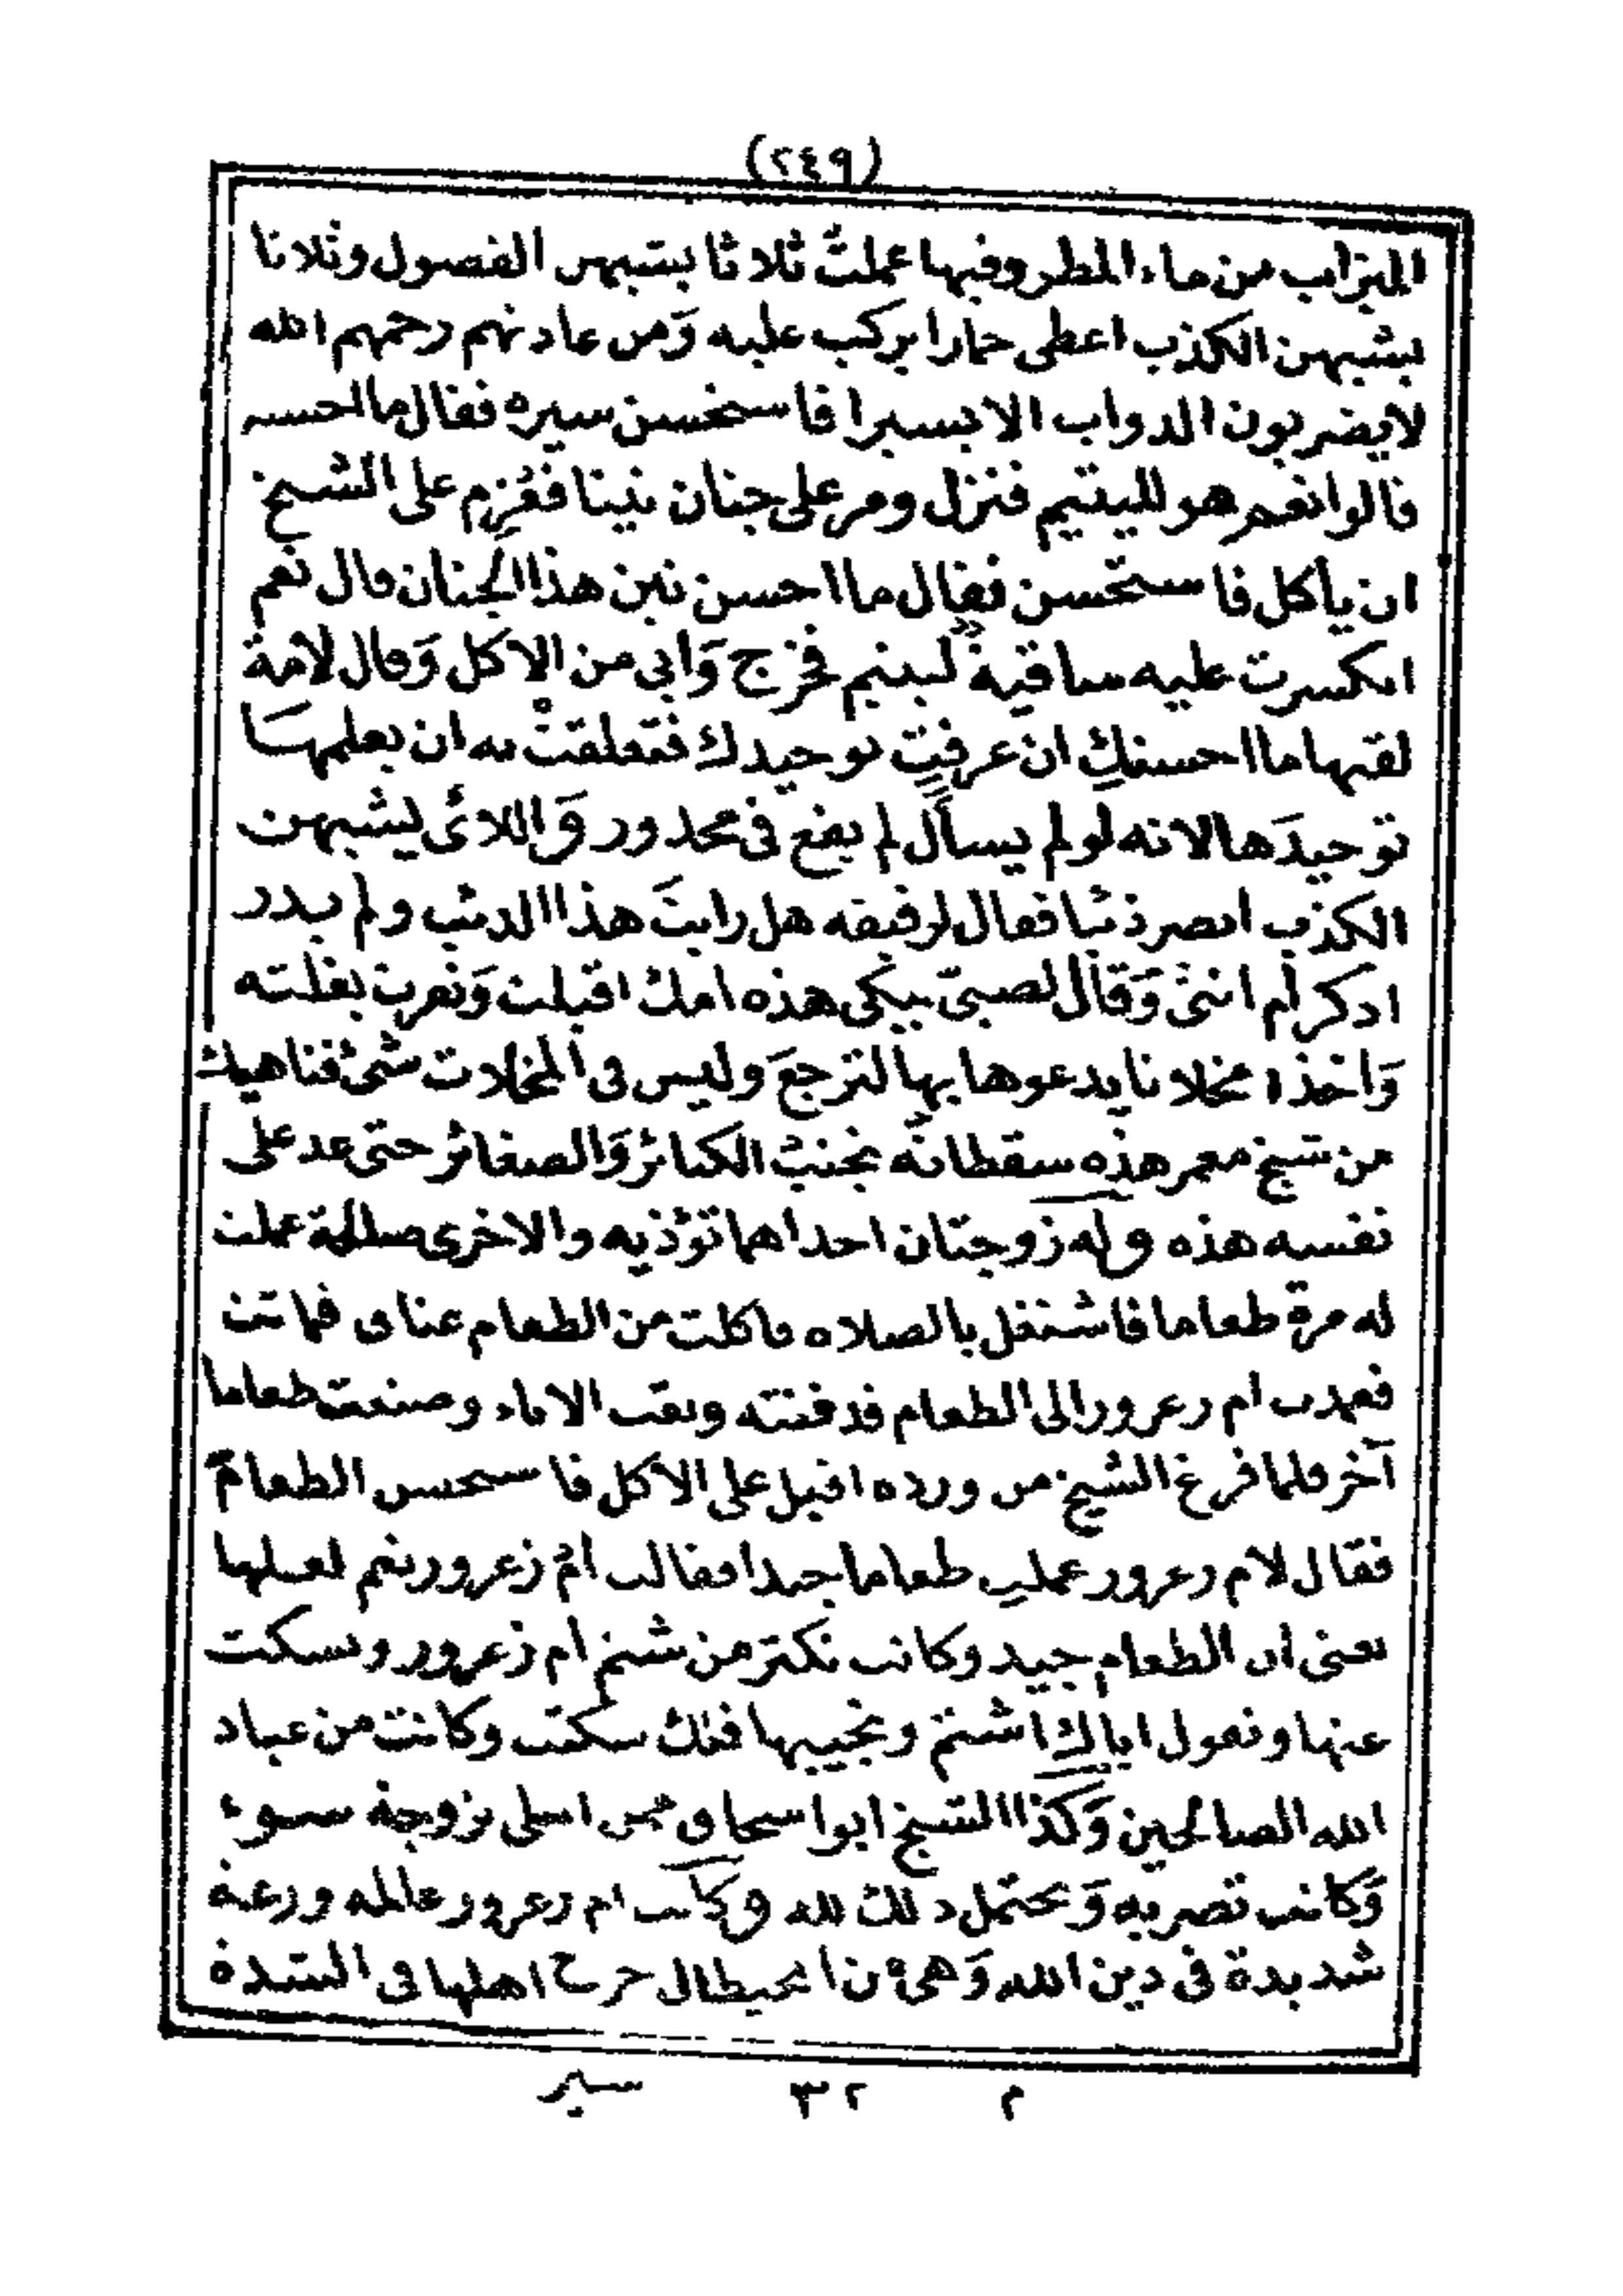 (٢٤٩)
الميزاب من ماء المطر وفيها عملتُ ثلاثا يشبهن الفضول وثلاثا
يشبهن الكذب اعطى حمارا يركب عليه وَمن عادتهم رحمهم الله
لايضربون الدواب الا يسيرا فاستحسن سيره فقال ما احسنه
قالوا نعم هو لليتيم فنزل ومر على جنان تينا فعُزِم على الشيخ
ان يأكل فاستحسن فقال ما احسن تين هذا الجنان قال نعم
انكسرت عليه ساقيةٌ ليتيم فخرج وَابى من الاكل وَقال لأمة
لقيها ما احسنكِ ان عرفتِ توحيدك فتعلقتْ به ان يعلمها
توحيدَها لانه لو لم يسأل لم يقع في محذور وَاللائى يشبهن
الكذب ابصر ذئبا فقال لرفيقه هل رايتَ هذا الذئب ولم يدر
اذكر أم انثى وَقال لصبيّ يبكى هذه امك اقبلت وَنفرت بغلته
وَاخذ مخلاتا يدعوها بها لترجعَ وليس في المخلات شئ فناهيك
من شيخ معمر هذه سقطاته تجنبَ الكبائر وَالصغائر حتى عد على
نفسه هذه وله زوجتان احداهما تؤذيه والاخرى صالحة عملت
له مرة طعاما فاشتغل بالصلاه فاكلت من الطعام عناق فماتت
فعمدت ام زعرور الى الطعام فدفنته ونقت الاناء وصنعت طعاما
آخر فلما فرغ الشيخ من ورده اقبل على الاكل فاستحسن الطعامَ
فقال لام زعرور عملتِ طعاما جيدا فقالت امّ زعرور نعم لعملها
تعنى أن الطعام جيد وكانت تكثر من شتم أم زعرور وتسكت
عنها وتقول اياكِ اشتم وتجيبها فعنك سكتت وكانت من عباد
الله الصالحين وَكذا الشيخ ابواسحاق ممن ابتلى بزوجة سوء
وَكانت تضربه وَيحتمل ذلك لله وكانت ام زعرور عالمه ورعة
شديدة في دين الله وَهى من ايحيطال خرج اهلها في الشدة
م ٣٢ سير